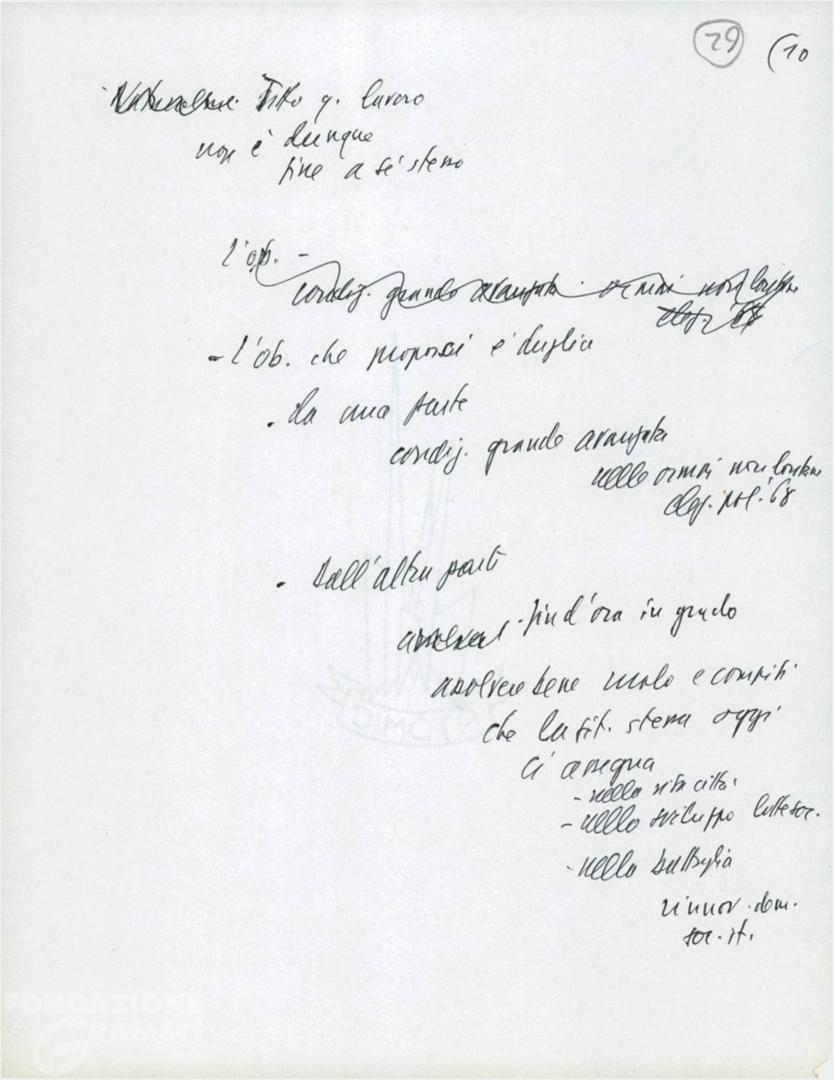 29 (10
Naturalme. Tutto q. lavoro
non è dunque
fine a sé stesso
l'ob. -
condiz. grande avanzata ormai non lontane
elez. 68
- l'ob. che proporci è duplice
. da una parte
condiz. grande avanzata
nelle ormai non lontane
elez. pol. 68
. Dall'altra parte
fin d'ora in grado
assolvere bene ruolo e compiti
che la sit. stessa oggi
ci assegna
- nella vita città
- nello sviluppo lotte soc.
- nella battaglia
rinnov. dem.
soc. it.
FONDAZIONE
GRAMSCI